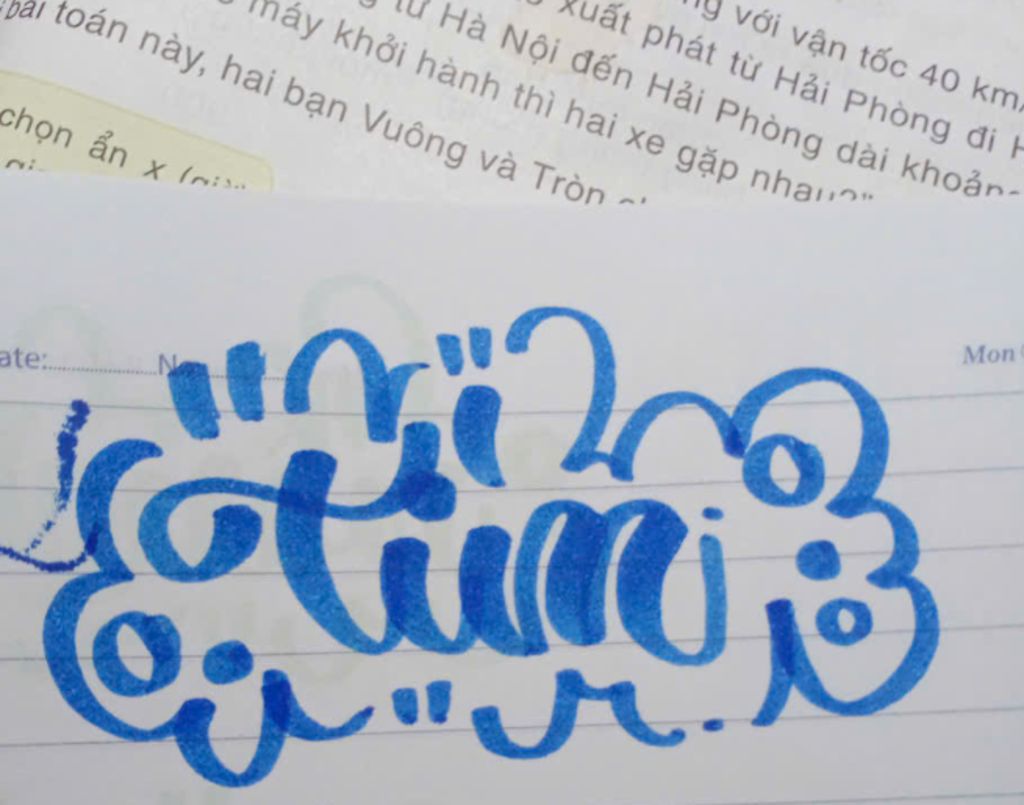 với vận tốc 40 km/
xuất phát từ Hải Phòng đi H
từ Hà Nội đến Hải Phòng dài khoảng
máy khởi hành thì hai xe gặp nhau?"
bài toán này, hai bạn Vuông và Tròn
chọn ẩn x
ate: No
Mon
Tumi